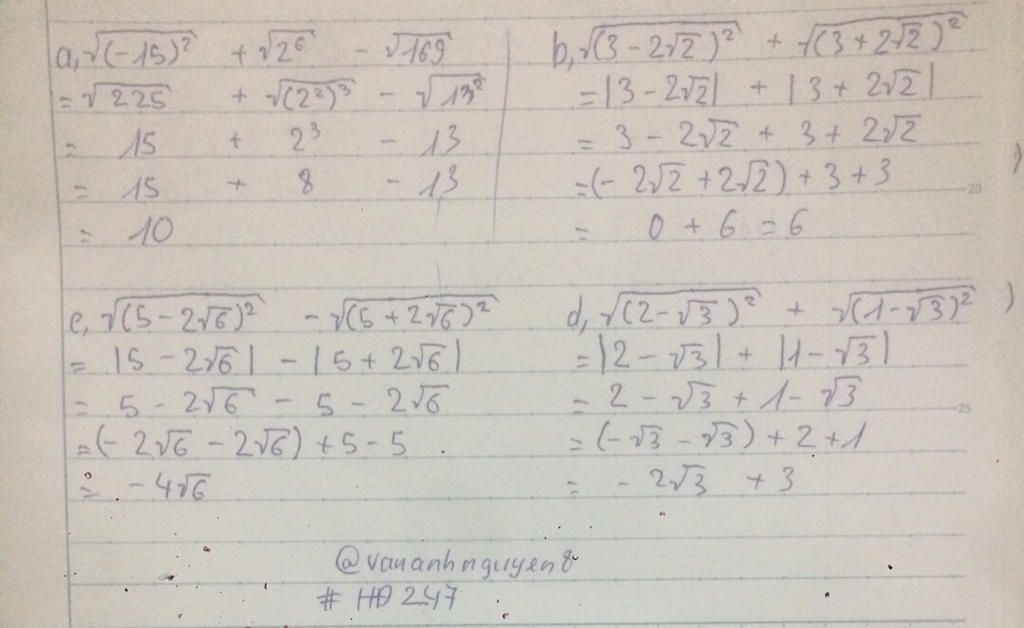 a, √(-15)² + √2⁶ - √169
= √225 + √(2²)³ - √13²
= 15 + 2³ - 13
= 15 + 8 - 13
= 10
b, √(3 - 2√2)² + √(3 + 2√2)²
= |3 - 2√2| + |3 + 2√2|
= 3 - 2√2 + 3 + 2√2
= (- 2√2 + 2√2) + 3 + 3
= 0 + 6 = 6
c, √(5 - 2√6)² - √(5 + 2√6)²
= |5 - 2√6| - |5 + 2√6|
= 5 - 2√6 - 5 - 2√6
= (- 2√6 - 2√6) + 5 - 5
= - 4√6
d, √(2 - √3)² + √(1 - √3)²
= |2 - √3| + |1 - √3|
= 2 - √3 + 1 - √3
= (- √3 - √3) + 2 + 1
= - 2√3 + 3
@vananhnguyen8
# HD247
20
25